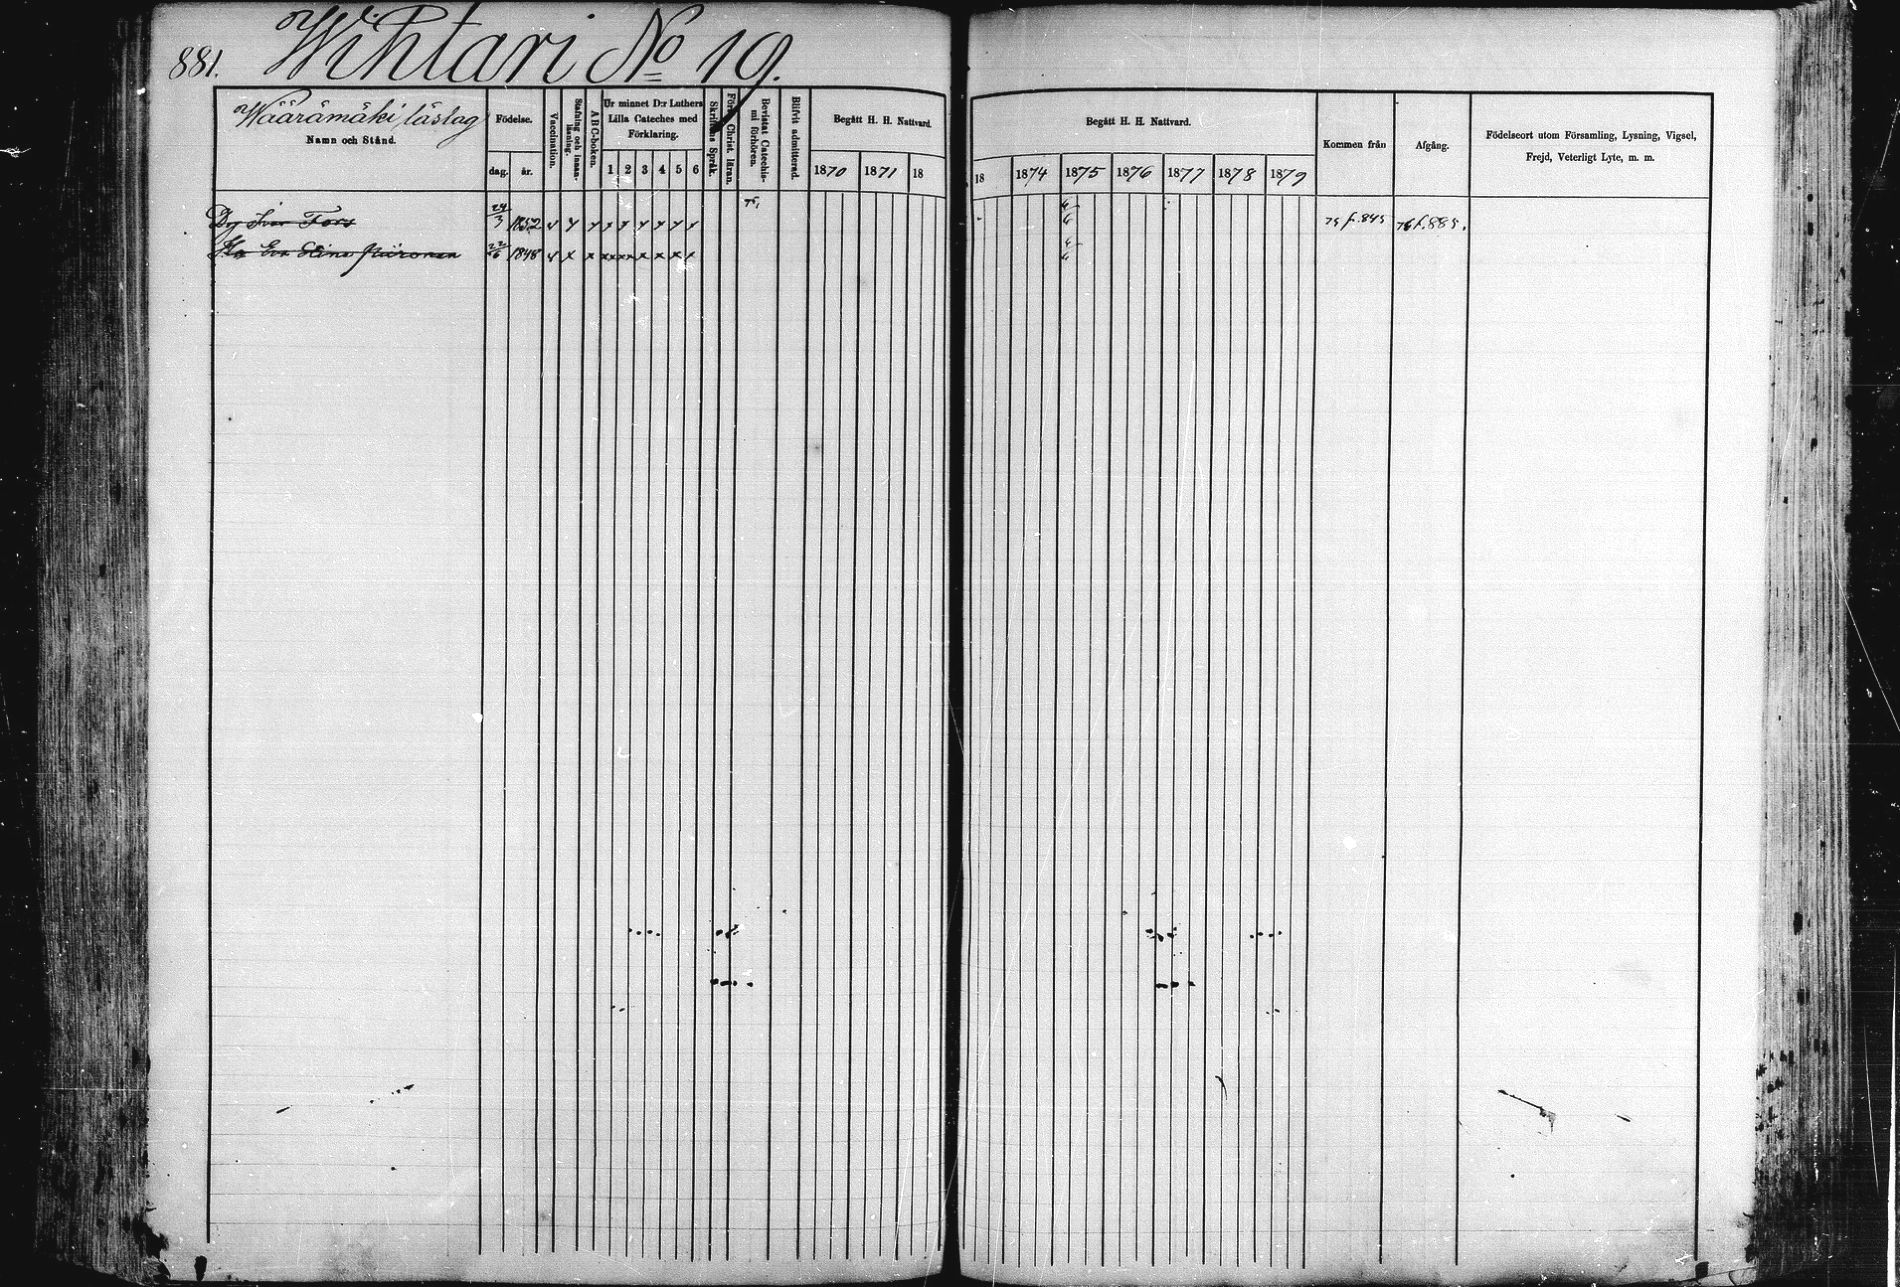 881. Wihtari No 19.
Wäärämäki läslag
Namn och Stånd.
Födelse.
dag. år.
Vaccination.
Stafning och innan-läsning.
A B C-boken.
Ur minnet D:r Luthers
Lilla Cateches med
Förklaring.
1 2 3 4 5 6
Skriftens Språk.
Christ. läran.
Bevistat Catechis-
mi förhören.
Blifvit admitterad.
Begått H. H. Nattvard.
1870 1871 18
Begått H. H. Nattvard.
18 1874 1875 1876 1877 1878 1879
Kommen från
Afgång.
Födelseort utom Församling, Lysning, Vigsel,
Frejd, Veterligt Lyte, m. m.
Fors 24/3 1852 75 f. 845 76 f. 885.
Eva Stina 22/6 1848